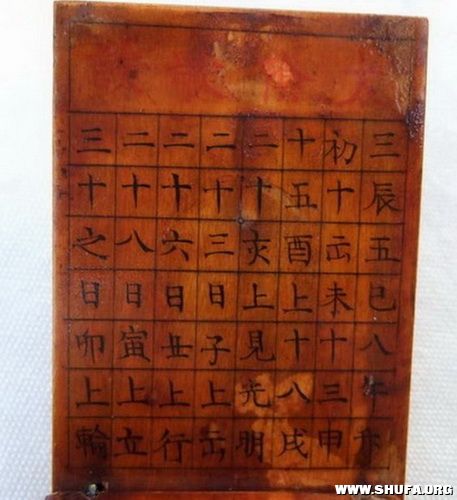 三辰五巳八午
初十出未十三申
十五酉上十八戌
二十亥上見光明
二十三日子上出
二十六日丑上行
二十八日寅上立
三十之日卯上輪
WWW.SHUFA.ORG